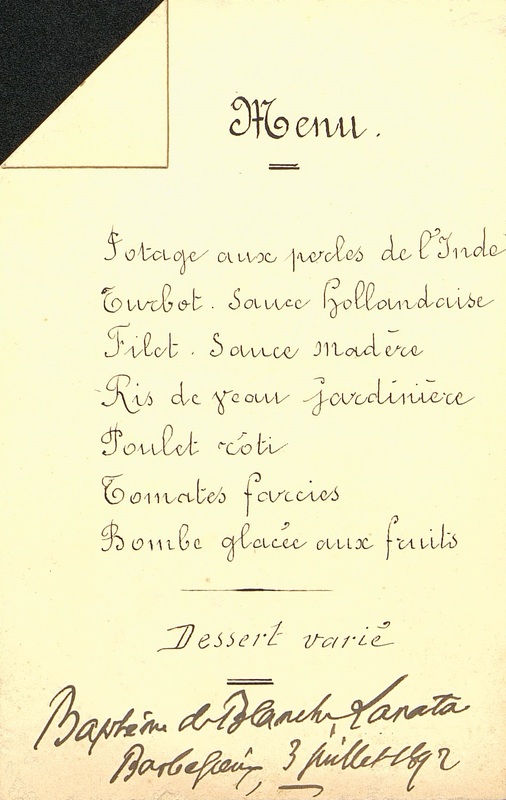 Menu.
Potage aux perles de l'Inde
Turbot. Sauce hollandaise
Filet. Sauce madère
Ris de veau jardinière
Poulet rôti
Tomates farcies
Bombe glacée aux fruits
Dessert varié
Baptême de Blanche Lanata
3 juillet 1892